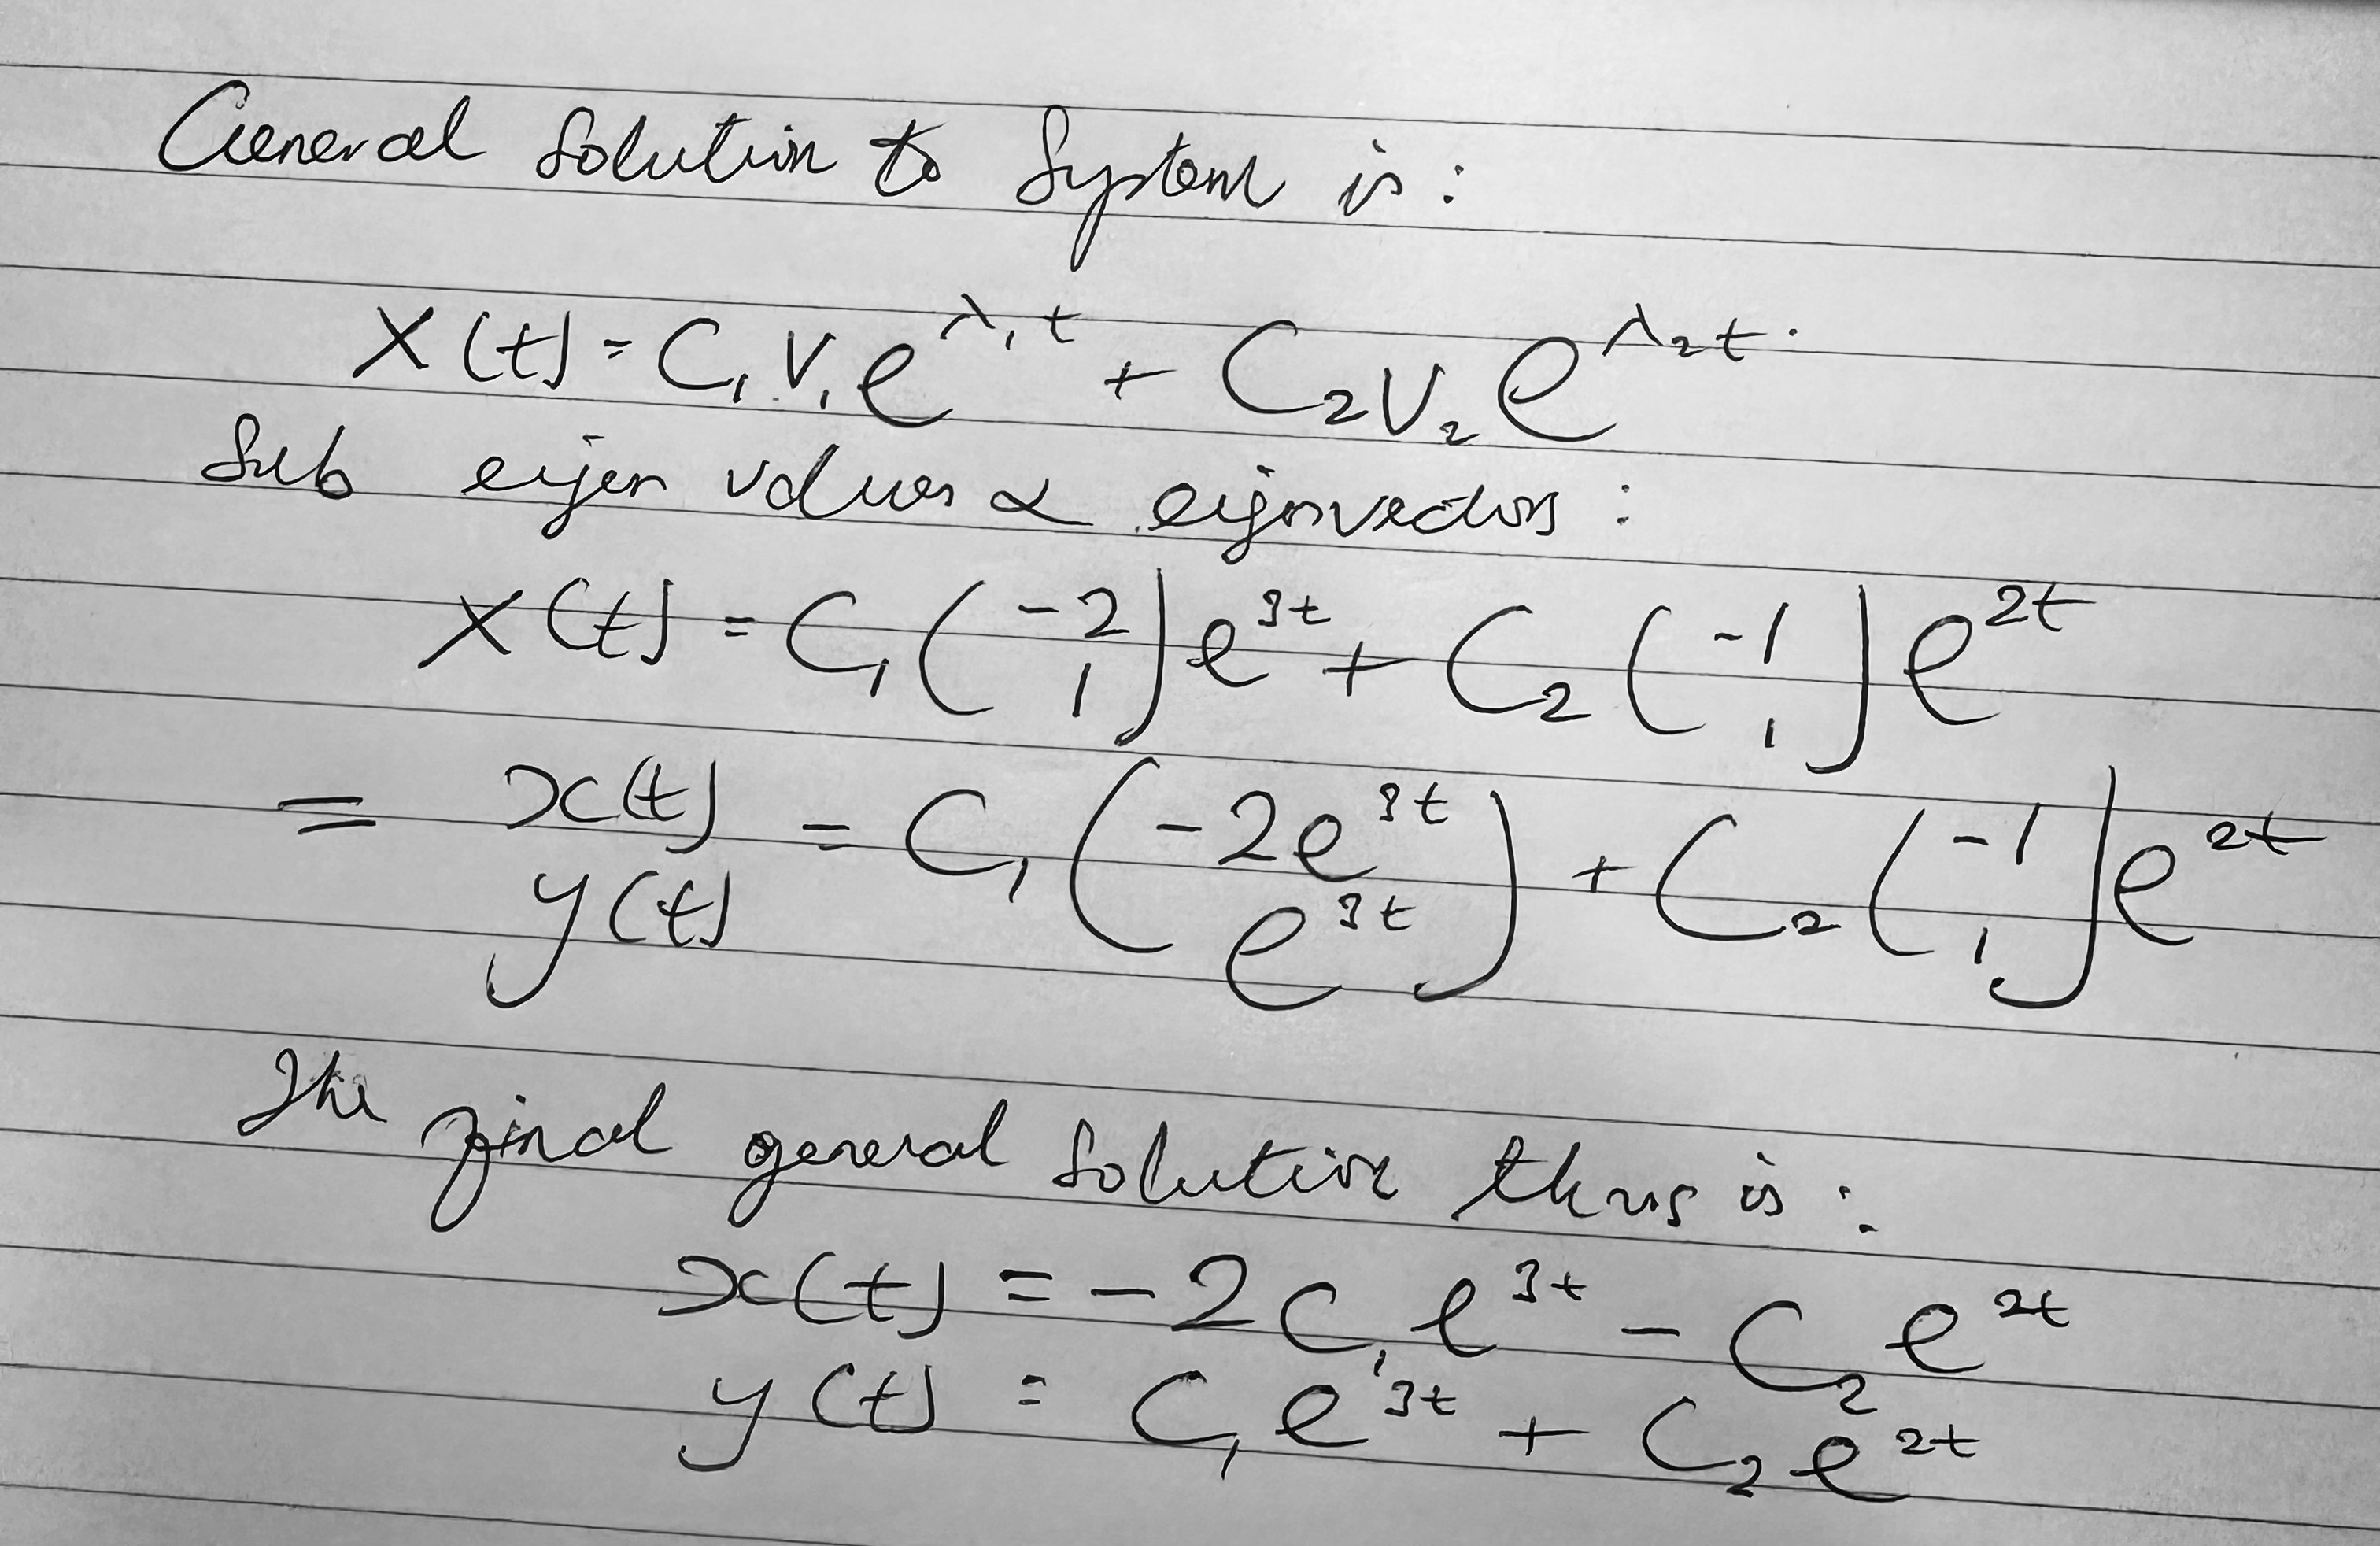 General Solution to System is:
X(t) = C₁V₁e^λ₁t + C₂V₂e^λ₂t.
Sub eigen values & eigenvectors:
X(t) = C₁(-2 1)e^3t + C₂(-1 1)e^2t
= x(t) y(t) = C₁(-2e^3t e^3t) + C₂(-1 1)e^2t
The final general solution thus is:
x(t) = -2C₁e^3t - C₂e^2t
y(t) = C₁e^3t + C₂e^2t